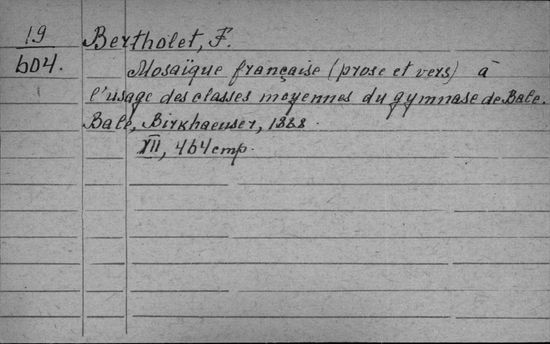 19
604.
Bertholet, F.
Mosaïque française (prose et vers) à
l'usage des classes moyennes du gymnase de Bale.
Bale, Birkhaeuser, 1888.
XII, 464 стр.